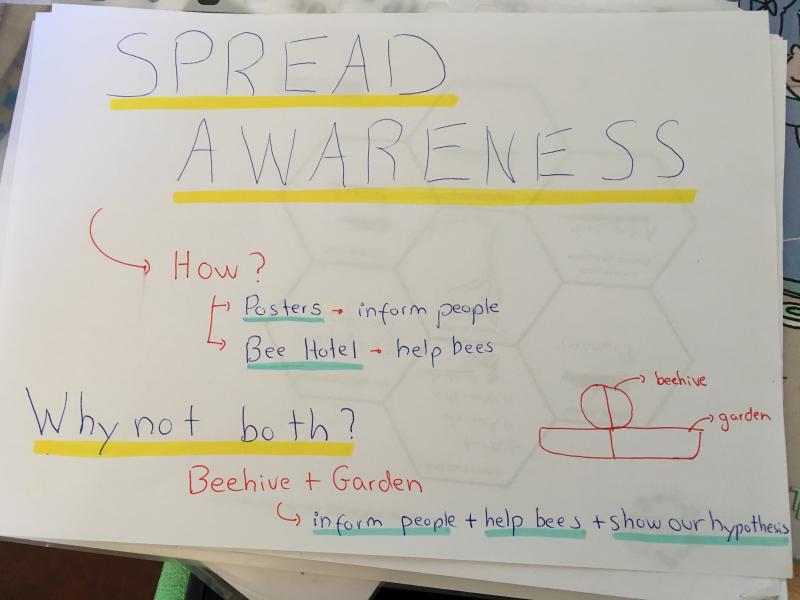 SPREAD
AWARENESS
How?
Posters → inform people
Bee Hotel → help bees
Why not both?
beehive
garden
Beehive + Garden
inform people + help bees + show our hypothesis